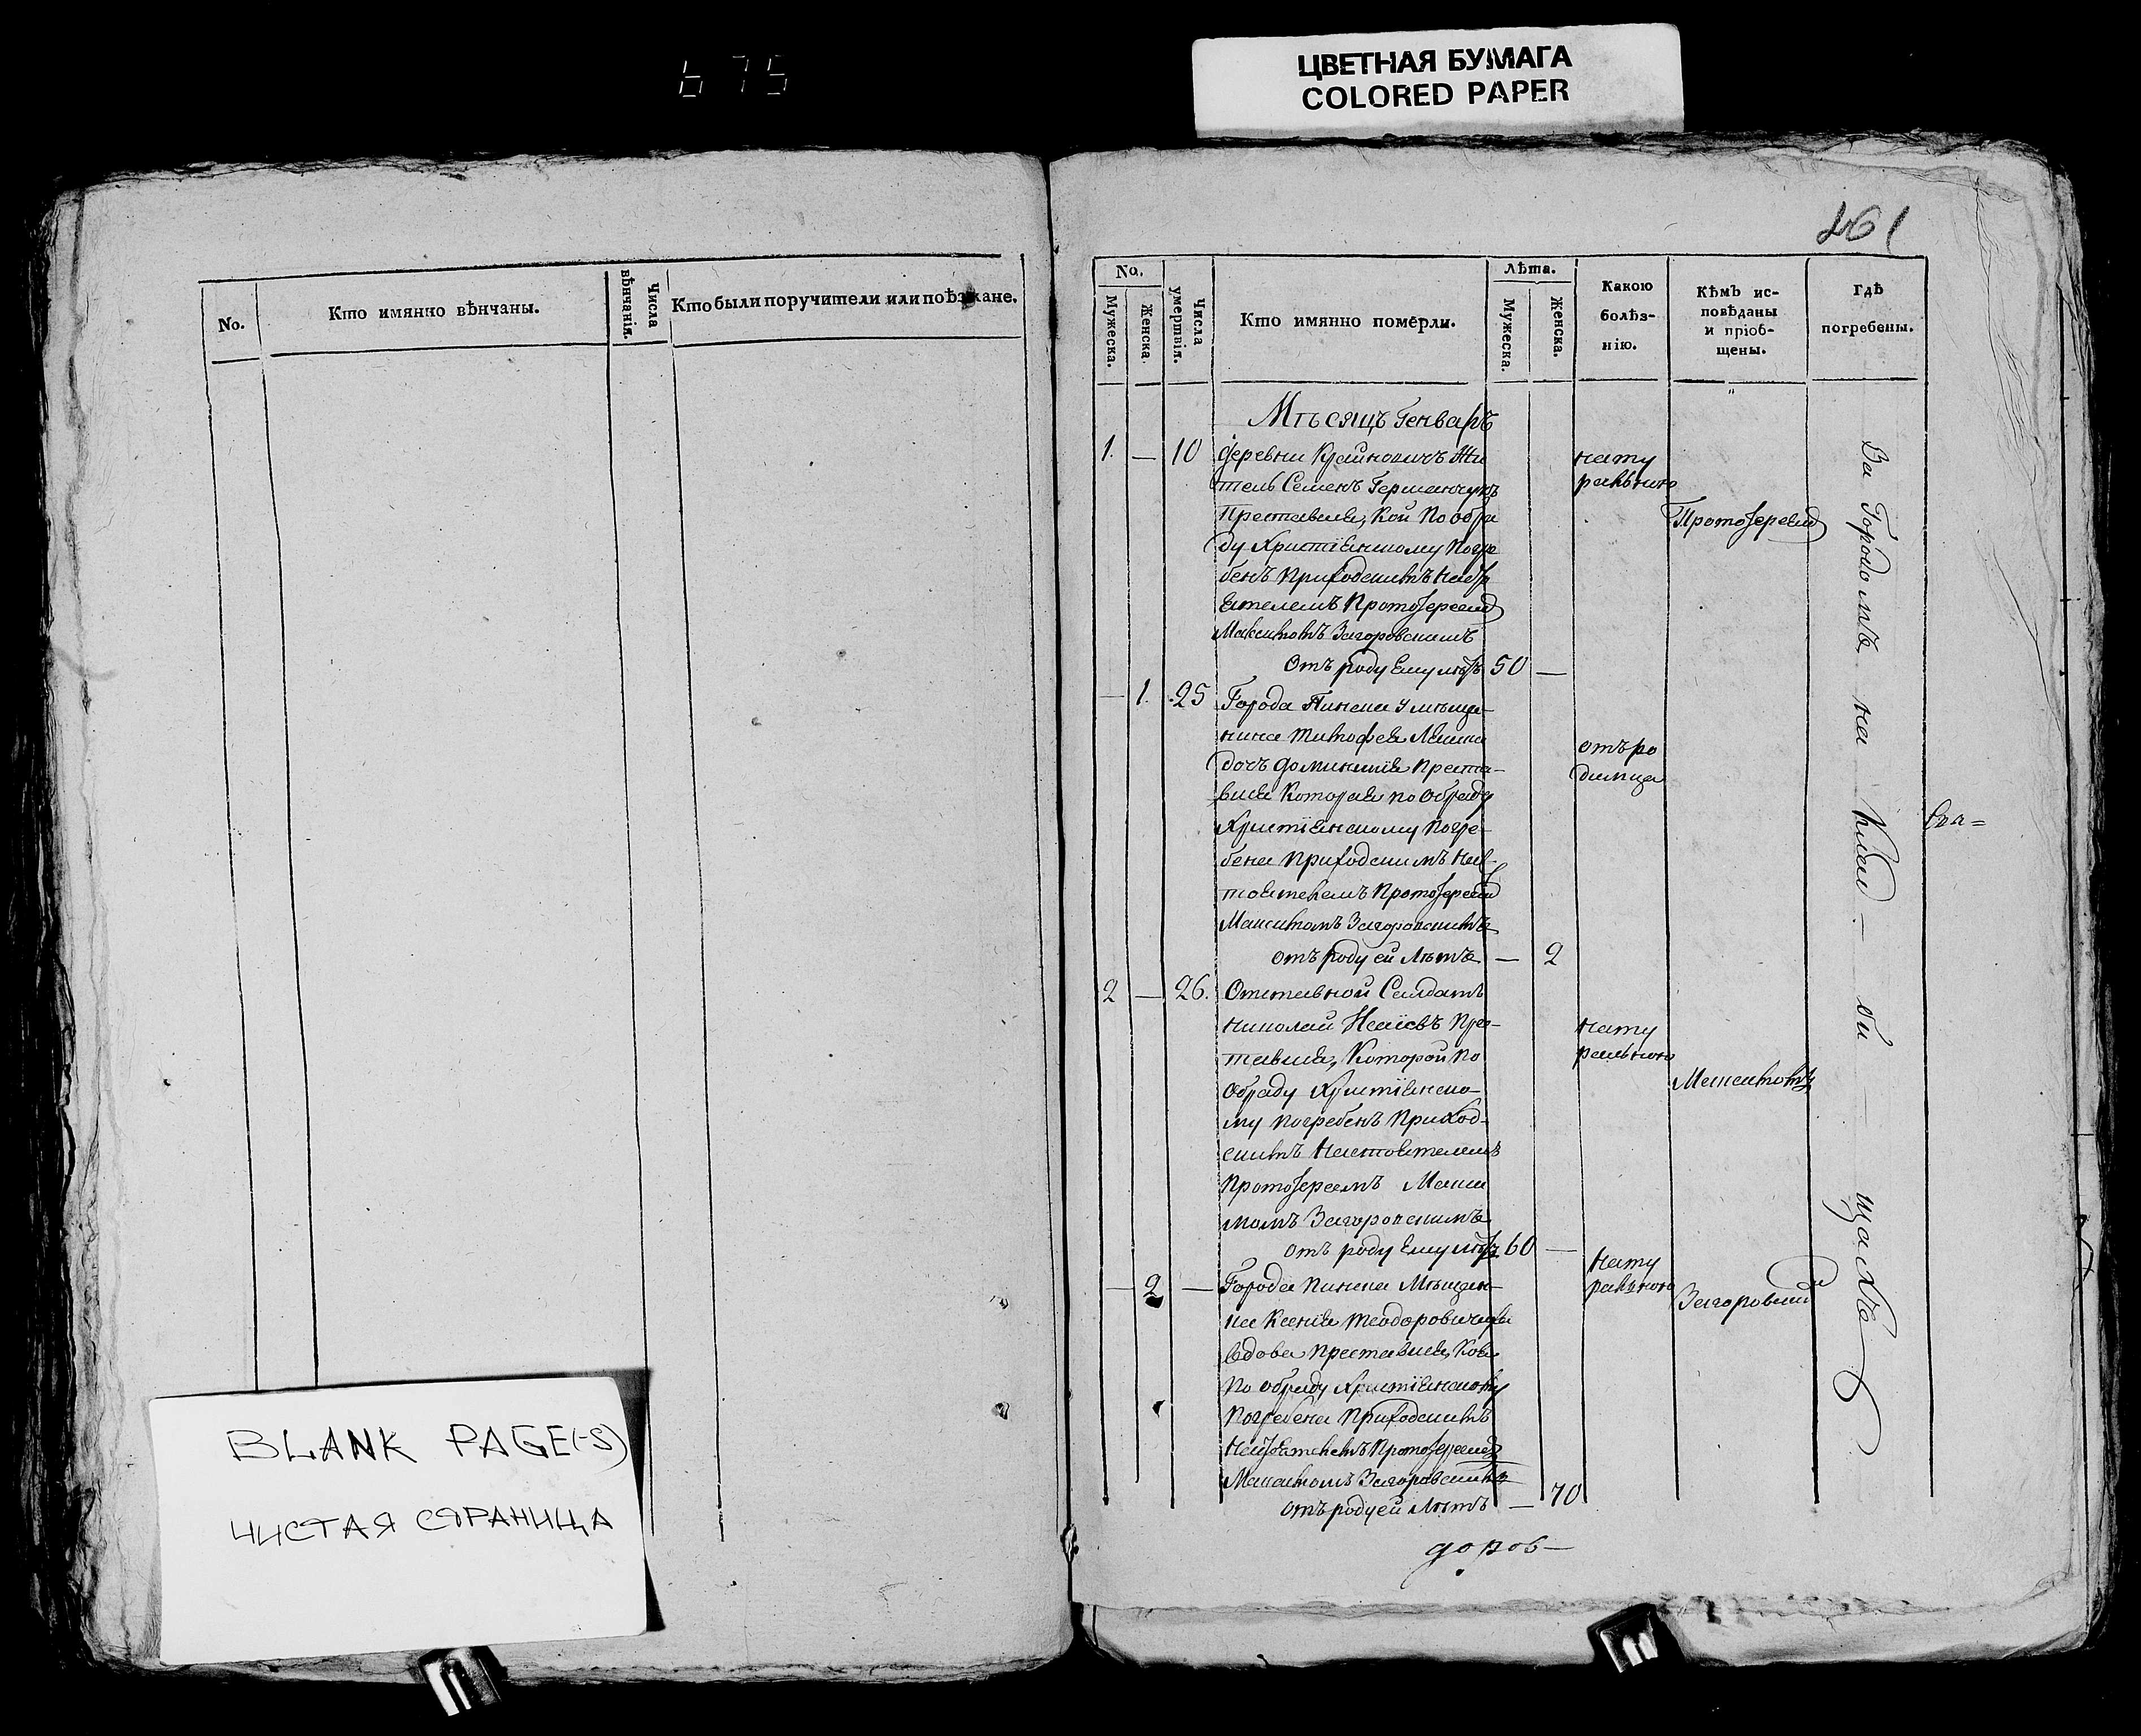 675
ЦВЕТНАЯ БУМАГА
COLORED PAPER
No.
Кто имянно вѣнчаны.
Числа
вѣнчанія.
Кто были поручители или поѣзжане.
BLANK PAGE(-S)
ЧИСТАЯ СТРАНИЦА
261
No.
Мужеска.
Женска.
Числа
умертвія.
Кто имянно померли.
Лѣта.
Мужеска.
Женска.
Какою
болѣз-
нію.
Кѣмъ ис-
повѣданы
и пріоб-
щены.
Гдѣ
погребены.
Мѣсяцъ Генварь
1. — 10 деревни Крайновичъ Жи
тель Семенъ Германчукъ
Преставися, Кой По обря
ду Христіянскому Погре
бенъ Приходскимъ Насто
ятелемъ Протоіереемъ
Максимомъ Загоровскимъ
Отъ роду Ему лѣтъ 50 —
нату
ральною
— 1. 25 Города Пинска Умѣща-
нина Тимофея
дочь Доминикія Преста-
вися Которая по Обряду
Христіянскому Погре-
бена Приходскимъ Нас-
тоятелемъ Протоіереемъ
Максимомъ Загоровскимъ
отъ роду ей Лѣтъ — 2
отъ ро
димца
2 — 26. Отставной Салдатъ
Николай Прес-
тавися, Которой По
Обряду Христіянско-
му погребенъ Приход-
скимъ Настоятелемъ
Протоіереемъ Макси
момъ Загоровскимъ
отъ роду Ему лѣтъ 60 —
нату
ральною
— 2 — Города Пинска Мѣщан-
ка Ксенія Теодоровичева
Вдова Преставися, Коя
По обряду Христіянскому
Погребена Приходскимъ
Настоятелемъ Протоіереемъ
Максимомъ Загоровскимъ
отъ роду ей Лѣтъ — 70
нату
ральною
Протоіереемъ
Максимомъ
Загоровскимъ
За Городомъ на Клад — би — щахъ